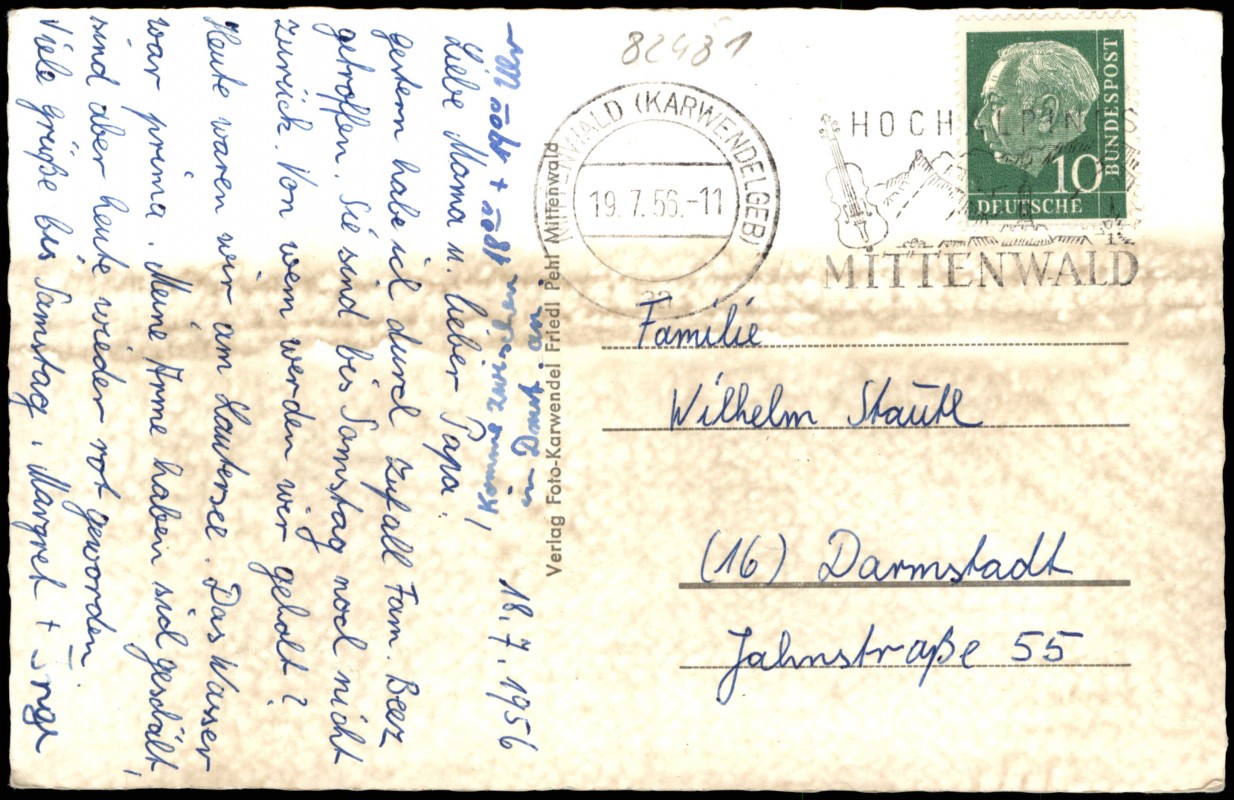 82481
MITTENWALD (KARWENDELGEB)
19.7.56.-11
aa
HOCHALPINES
MITTENWALD
10
DEUTSCHE
BUNDESPOST
Verlag Foto-Karwendel Friedl Pehl Mittenwald
Familie
Wilhelm Staute
(16) Darmstadt
Jahnstraße 55
18.7.1956
Liebe Mama u. lieber Papa!
gestern habe ich durch Zufall Fam. Beez
getroffen. Sie sind bis Samstag noch nicht
zurück. Von wem werden wir geholt?
Heute waren wir am Lautersee. Das Wasser
war prima. Meine Arme haben sich geschält,
sind aber heute wieder rot geworden
Viele Grüße bis Samstag, Margret + Inge
Komme zwischen
in Dmst. an